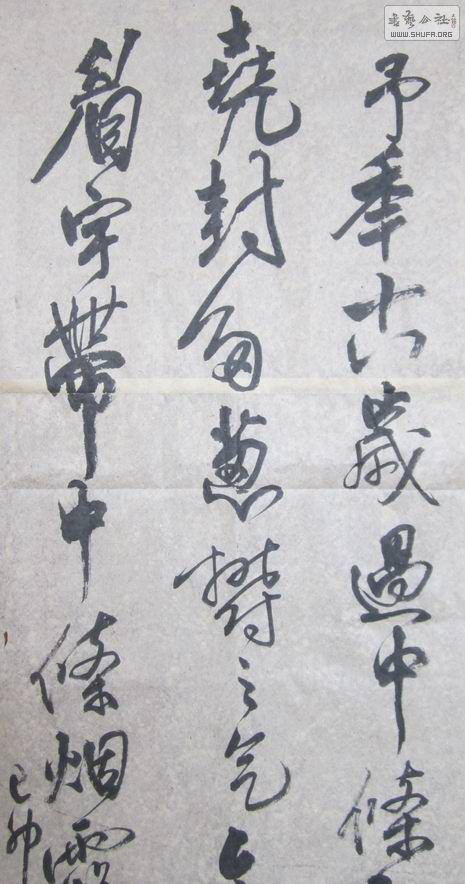 書藝公社
WWW.SHUFA.ORG
予年十六歲過中條
堯封葱鬱之气
眉宇帶中條烟霞
己卯